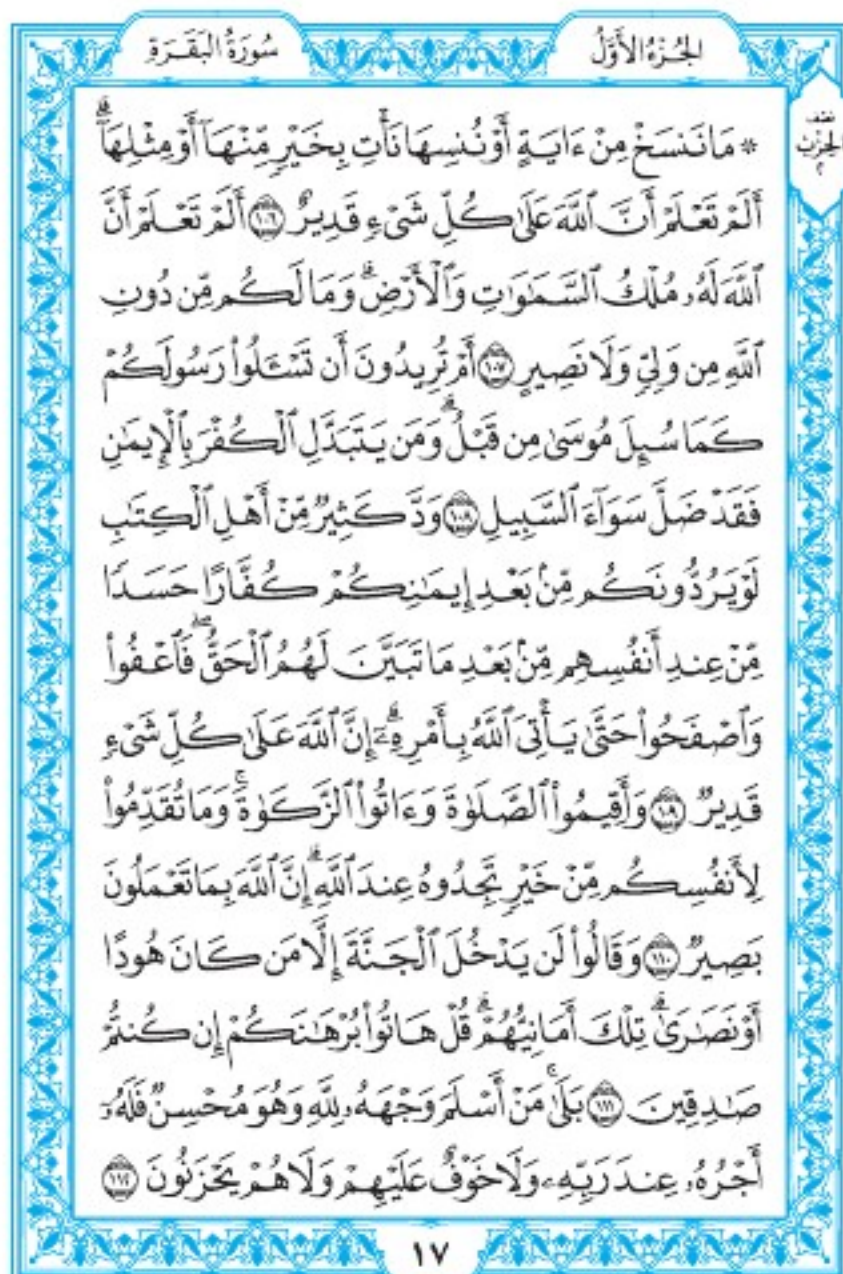 سُورَةُ البَقَرَةِ
الجُزْءُ الأَوَّلُ
نصف
الحِزْب
٢
* مَا نَنسَخْ مِنْ ءَايَةٍ أَوْ نُنسِهَا نَأْتِ بِخَيْرٍ مِّنْهَآ أَوْ مِثْلِهَآۗ
أَلَمْ تَعْلَمْ أَنَّ ٱللَّهَ عَلَىٰ كُلِّ شَىْءٍ قَدِيرٌ ١٠٦ أَلَمْ تَعْلَمْ أَنَّ
ٱللَّهَ لَهُۥ مُلْكُ ٱلسَّمَٰوَٰتِ وَٱلْأَرْضِۗ وَمَا لَكُم مِّن دُونِ
ٱللَّهِ مِن وَلِىٍّ وَلَا نَصِيرٍ ١٠٧ أَمْ تُرِيدُونَ أَن تَسْـَٔلُوا۟ رَسُولَكُمْ
كَمَا سُئِلَ مُوسَىٰ مِن قَبْلُۗ وَمَن يَتَبَدَّلِ ٱلْكُفْرَ بِٱلْإِيمَٰنِ
فَقَدْ ضَلَّ سَوَآءَ ٱلسَّبِيلِ ١٠٨ وَدَّ كَثِيرٌ مِّنْ أَهْلِ ٱلْكِتَٰبِ
لَوْ يَرُدُّونَكُم مِّنۢ بَعْدِ إِيمَٰنِكُمْ كُفَّارًا حَسَدًا
مِّنْ عِندِ أَنفُسِهِم مِّنۢ بَعْدِ مَا تَبَيَّنَ لَهُمُ ٱلْحَقُّۖ فَٱعْفُوا۟
وَٱصْفَحُوا۟ حَتَّىٰ يَأْتِىَ ٱللَّهُ بِأَمْرِهِۦٓۗ إِنَّ ٱللَّهَ عَلَىٰ كُلِّ شَىْءٍ
قَدِيرٌ ١٠٩ وَأَقِيمُوا۟ ٱلصَّلَوٰةَ وَءَاتُوا۟ ٱلزَّكَوٰةَۚ وَمَا تُقَدِّمُوا۟
لِأَنفُسِكُم مِّنْ خَيْرٍ تَجِدُوهُ عِندَ ٱللَّهِۗ إِنَّ ٱللَّهَ بِمَا تَعْمَلُونَ
بَصِيرٌ ١١٠ وَقَالُوا۟ لَن يَدْخُلَ ٱلْجَنَّةَ إِلَّا مَن كَانَ هُودًا
أَوْ نَصَٰرَىٰۗ تِلْكَ أَمَانِيُّهُمْۗ قُلْ هَاتُوا۟ بُرْهَٰنَكُمْ إِن كُنتُمْ
صَٰدِقِينَ ١١١ بَلَىٰۚ مَنْ أَسْلَمَ وَجْهَهُۥ لِلَّهِ وَهُوَ مُحْسِنٌ فَلَهُۥٓ
أَجْرُهُۥ عِندَ رَبِّهِۦ وَلَا خَوْفٌ عَلَيْهِمْ وَلَا هُمْ يَحْزَنُونَ ١١٢
١٧